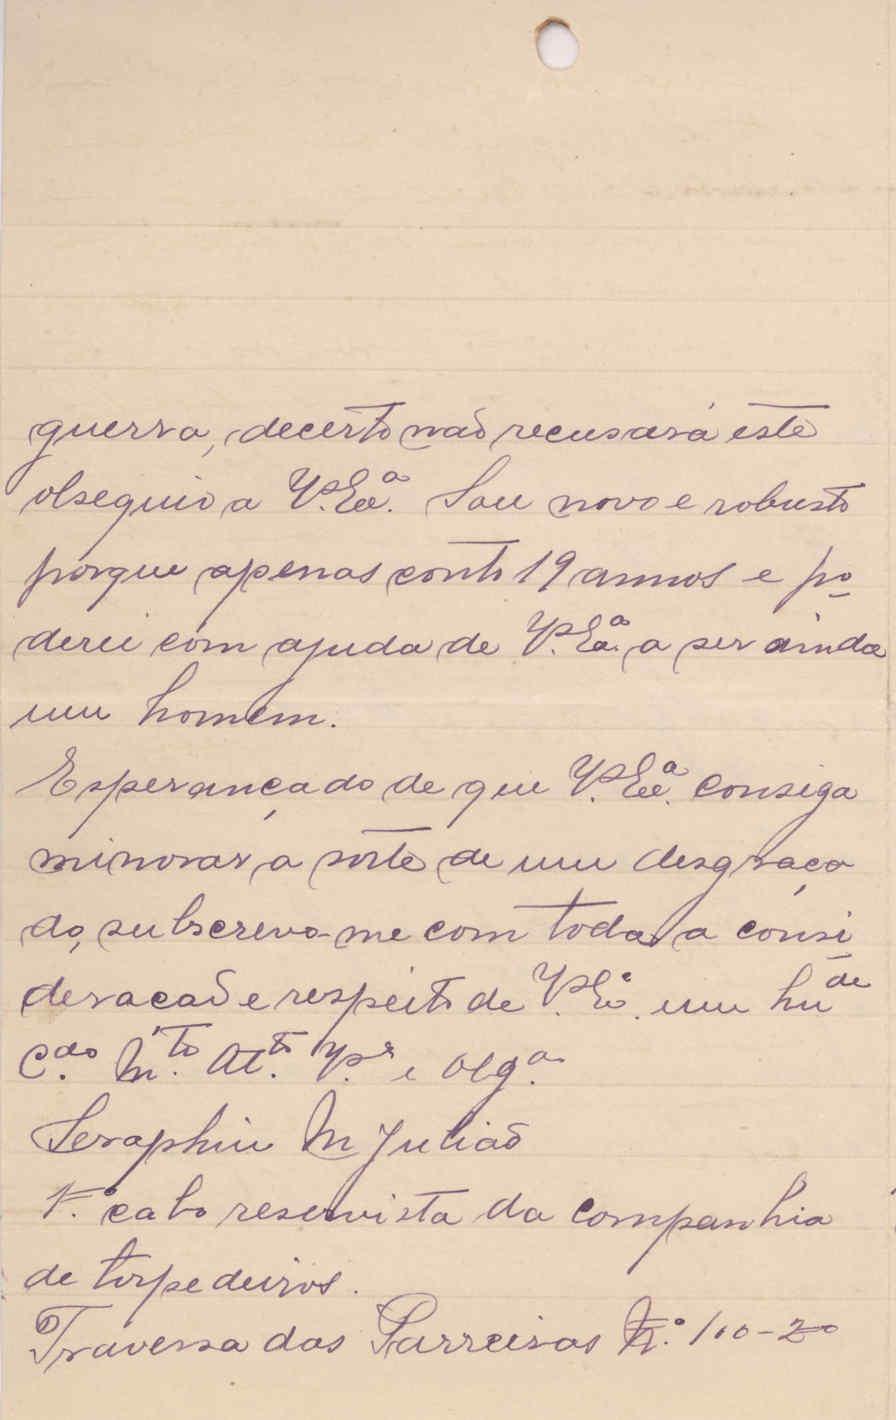 guerra, decerto não recusará este
obsequio a V. Exª. Sou novo e robusto
porque apenas conto 19 annos e po-
derei com ajuda de V. Exª. a ser ainda
um homem.
Esperançado de que V. Exª. consiga
minorar a sorte de um desgraça
do, subscrevo-me com toda a consi-
deracaõ e respeito de V. Eª. um hu de
C.do M.to Att.to V.r e Obg.o
Seraphim M Julião
1º. cabo reservista da companhia
de torpedeiros.
Travessa das Parreiras N.º 100-2º